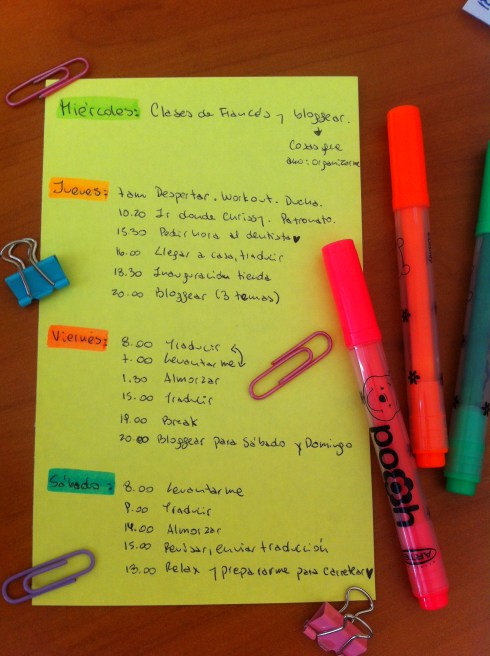 Miércoles: Clases de Francés y bloggear.
Cosas que
amo: organizarme
Jueves: 7am Despertar. Workout. Ducha.
10.20 Ir donde Chrissy. Patronato.
15.30 Pedir hora al dentista♥
16.00 Llegar a casa, traducir
18.30 Inauguración tienda
20.00 Bloggear (3 temas)
Viernes: 8.00 Traducir
7.00 Levantarme
1.30 Almorzar
15.00 Traducir
19.00 Break
20.00 Bloggear para Sábado y Domingo
Sábado: 8.00 Levantarme
9.00 Traducir
14.00 Almorzar
15.00 Revisar, enviar traducción
18.00 Relax y prepararme para carretear♥
pooh